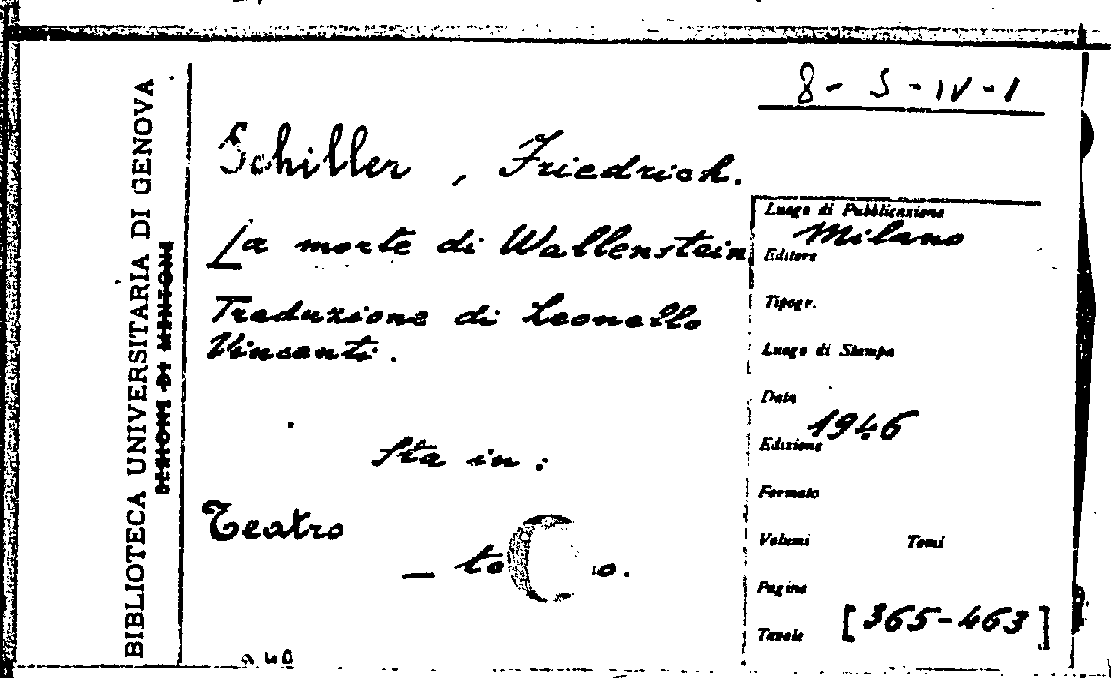 8 - S - IV - 1
Schiller, Friedrich.
La morte di Wallenstein
Traduzione di Leonello
Vincenti.
Sta in:
Teatro
BIBLIOTECA UNIVERSITARIA DI GENOVA
Luogo di Pubblicazione
Milano
Editore
Tipogr.
Luogo di Stampa
Data
1946
Edizione
Formato
Volumi Tomi
Pagine
[365-463]
Tavole